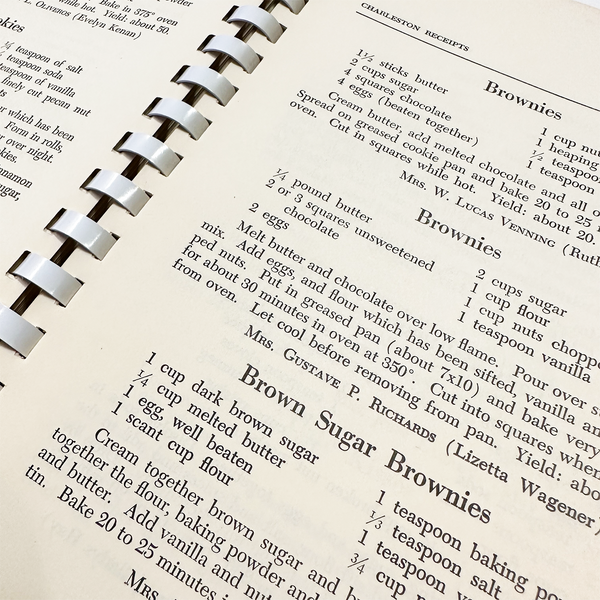 powder
Bake in 375° oven
while hot. Yield: about 50.
(Evelyn Kenan)
¼ teaspoon of salt
teaspoon soda
teaspoon of vanilla
finely cut pecan nut
which has been
Form in rolls,
over night.
cinnamon
sugar,
CHARLESTON RECEIPTS
Brownies
1½ sticks butter
2 cups sugar
4 squares chocolate
4 eggs (beaten together)
1 cup
1 heaping
½ teaspoon
1 teaspoon
Cream butter, add melted chocolate and all
Spread on greased cookie pan and bake 20 to 25
oven. Cut in squares while hot. Yield: about 20.
MRS. W. LUCAS VENNING
Brownies
¼ pound butter
2 or 3 squares unsweetened
chocolate
2 eggs
2 cups sugar
1 cup flour
1 cup nuts
1 teaspoon vanilla
Melt butter and chocolate over low flame. Pour over
mix. Add eggs, and flour which has been sifted, vanilla
ped nuts. Put in greased pan (about 7x10) and bake very
for about 30 minutes in oven at 350°. Cut into squares when
from oven. Let cool before removing from pan. Yield:
MRS. GUSTAVE P. RICHARDS (Lizetta Wagener)
Brown Sugar Brownies
1 cup dark brown sugar
¼ cup melted butter
1 egg, well beaten
1 scant cup flour
1 teaspoon baking
⅓ teaspoon salt
1 teaspoon
¾ cup
Cream together brown sugar and
together the flour, baking powder and
and butter. Add vanilla and
tin. Bake 20 to 25 minutes
MRS.